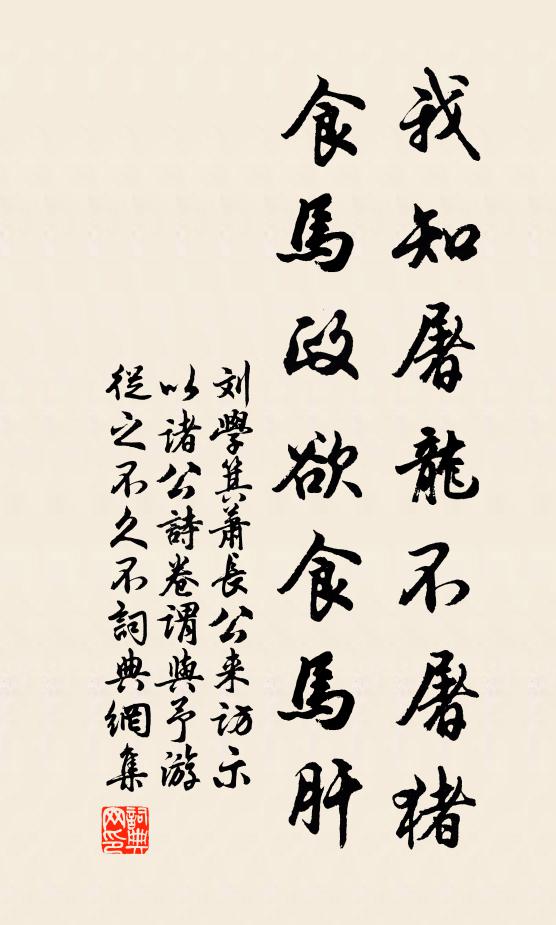 我知屠龍不屠猪
食馬政欲食馬肝
刘學箕蕭長公来訪示
以诸公詩卷謂與予游
從之不久不詞典網集
詞典網印